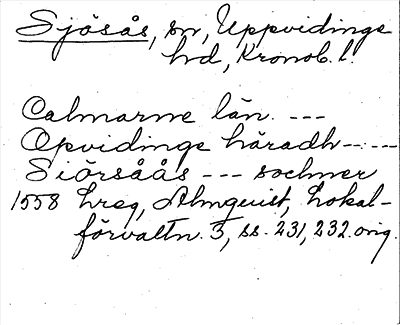 Sjösås, sn, Uppvidinge
hd, Kronob. l.
Calmarne län. ---
Opvidinge häradh -- ---
Siörsåås --- sochner
1558 hreg, Almquist, Lokal-
förvaltn. 3, ss. 231, 232. orig.